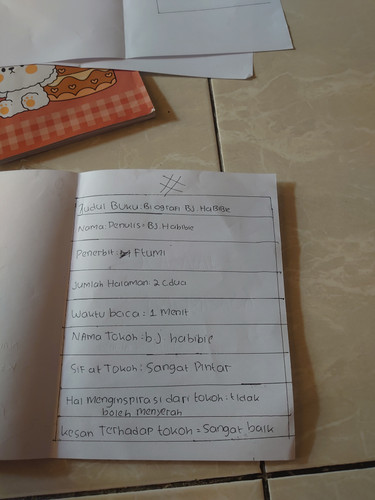 Judul Buku: Biografi BJ. HaBiBie
Nama Penulis: BJ. Habibie
Penerbit: Ptumi
Jumlah Halaman: 2 (dua
Waktu baca: 1 Menit
NAMa TOKOH: bJ habibie
SiFat TOKOH: Sangat Pintar
Hal menginspirasi dari tokoh: tidak
boleh menyerah
Kesan Terhadap tokoh = Sangat baik